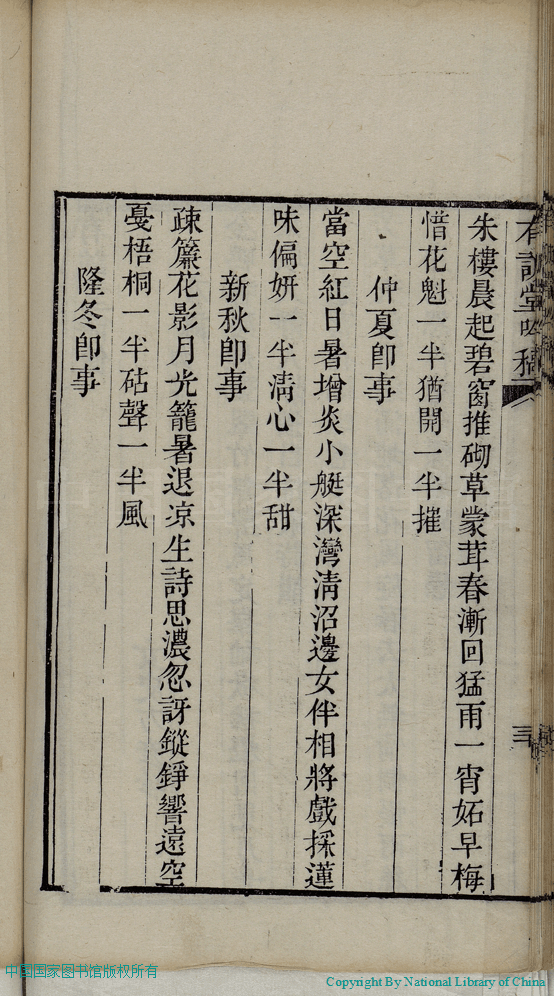 朱樓晨起碧窗推砌草蒙茸春漸回猛雨一宵妬早梅
惜花魁一半猶開一半摧
仲夏卽事
當空紅日暑增炎小艇深灣淸沼邊女伴相將戲採蓮
味偏妍一半淸心一半甜
新秋卽事
疎簾花影月光籠暑退凉生詩思濃忽訝鏦錚響遠空
戞梧桐一半砧聲一半風
隆冬卽事
中国国家图书馆版权所有
Copyright By National Library of China